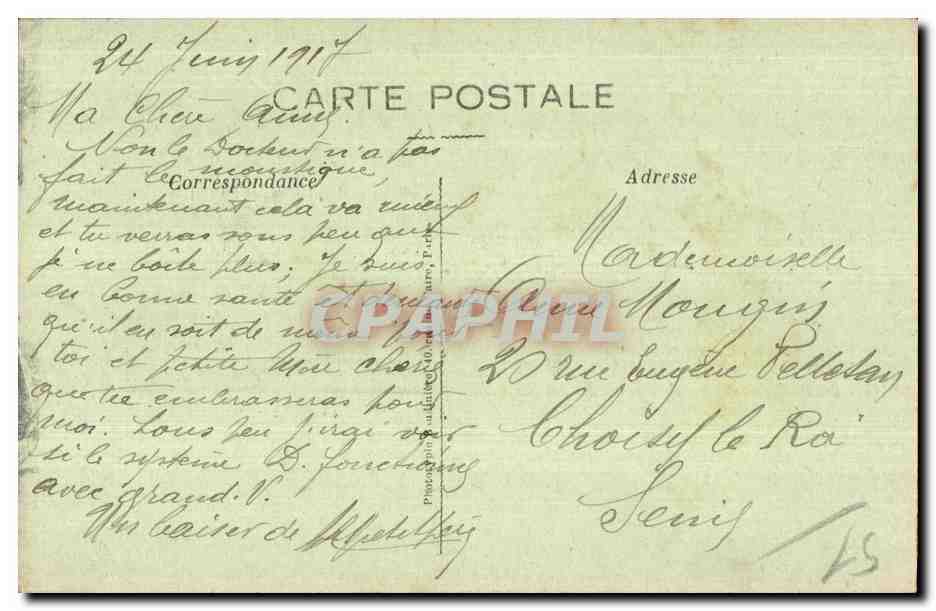 24 Juin 1917
CARTE POSTALE
Ma Chère Anne.
Non le Docteur n'a pas
fait le moustique,
Correspondance
maintenant celà va mieux
et tu verras sous peu que
je ne boîte plus, Je suis
en bonne santé et
qu'il en soit de même pour
toi et petite Mère chérie
que tu embrasseras pour
moi. Sous peu j'irai voir
si le système D. fonctionne
avec grand. V.
Un baiser de
Adresse
Mademoiselle
Anne Mougin
20 rue Eugène Pelletan
Choisy le Roi
Seine
CPAPHIL
15